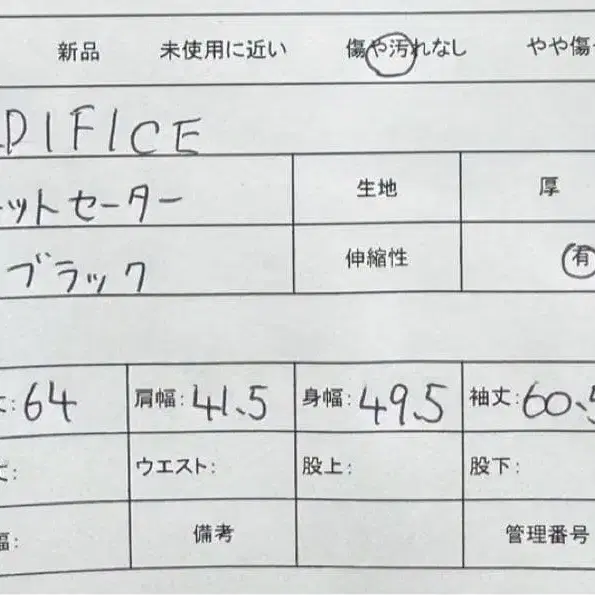 新品 未使用に近い 傷や汚れなし やや傷
DIFICE
ットセーター 生地 厚
ブラック 伸縮性 有
丈:64 肩幅:41.5 身幅:49.5 袖丈:60.5
丈: ウエスト: 股上: 股下:
幅: 備考 管理番号